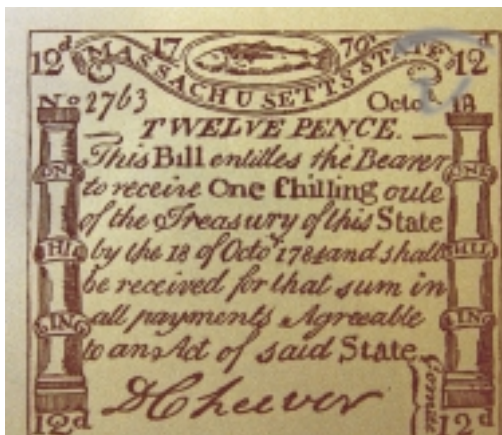 12d 17 76 12d
MASSACHUSETTS STATE
No 2763 Octor. 18
TWELVE PENCE.
This Bill entitles the Bearer
to receive One ſhilling oute
of the Treasury of this State
by the 18 of Octor. 1784 and shall
be received for that sum in
all payments Agreeable
to an Act of said State
ONE ONE
SHIL SHILL
LING LING
DCheever
12d 12d
Comtee